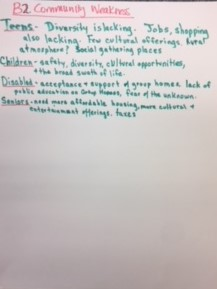 B2 Community Weakness
Teens - Diversity is lacking. Jobs, shopping
also lacking. Few cultural offerings. Rural
atmosphere? Social gathering places
Children - safety, diversity, cultural opportunities,
+ the broad swath of life.
Disabled - acceptance + support of group homes. lack of
public education on Group Homes, fear of the unknown.
Seniors - need more affordable housing, more cultural +
entertainment offerings. taxes